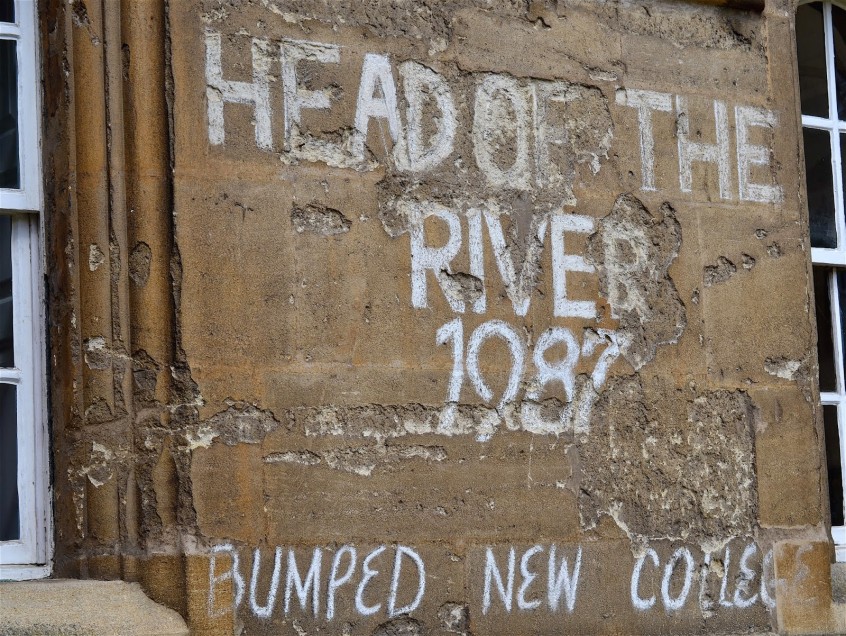 HEAD OF THE
RIVER
1987
BUMPED NEW COLLEGE